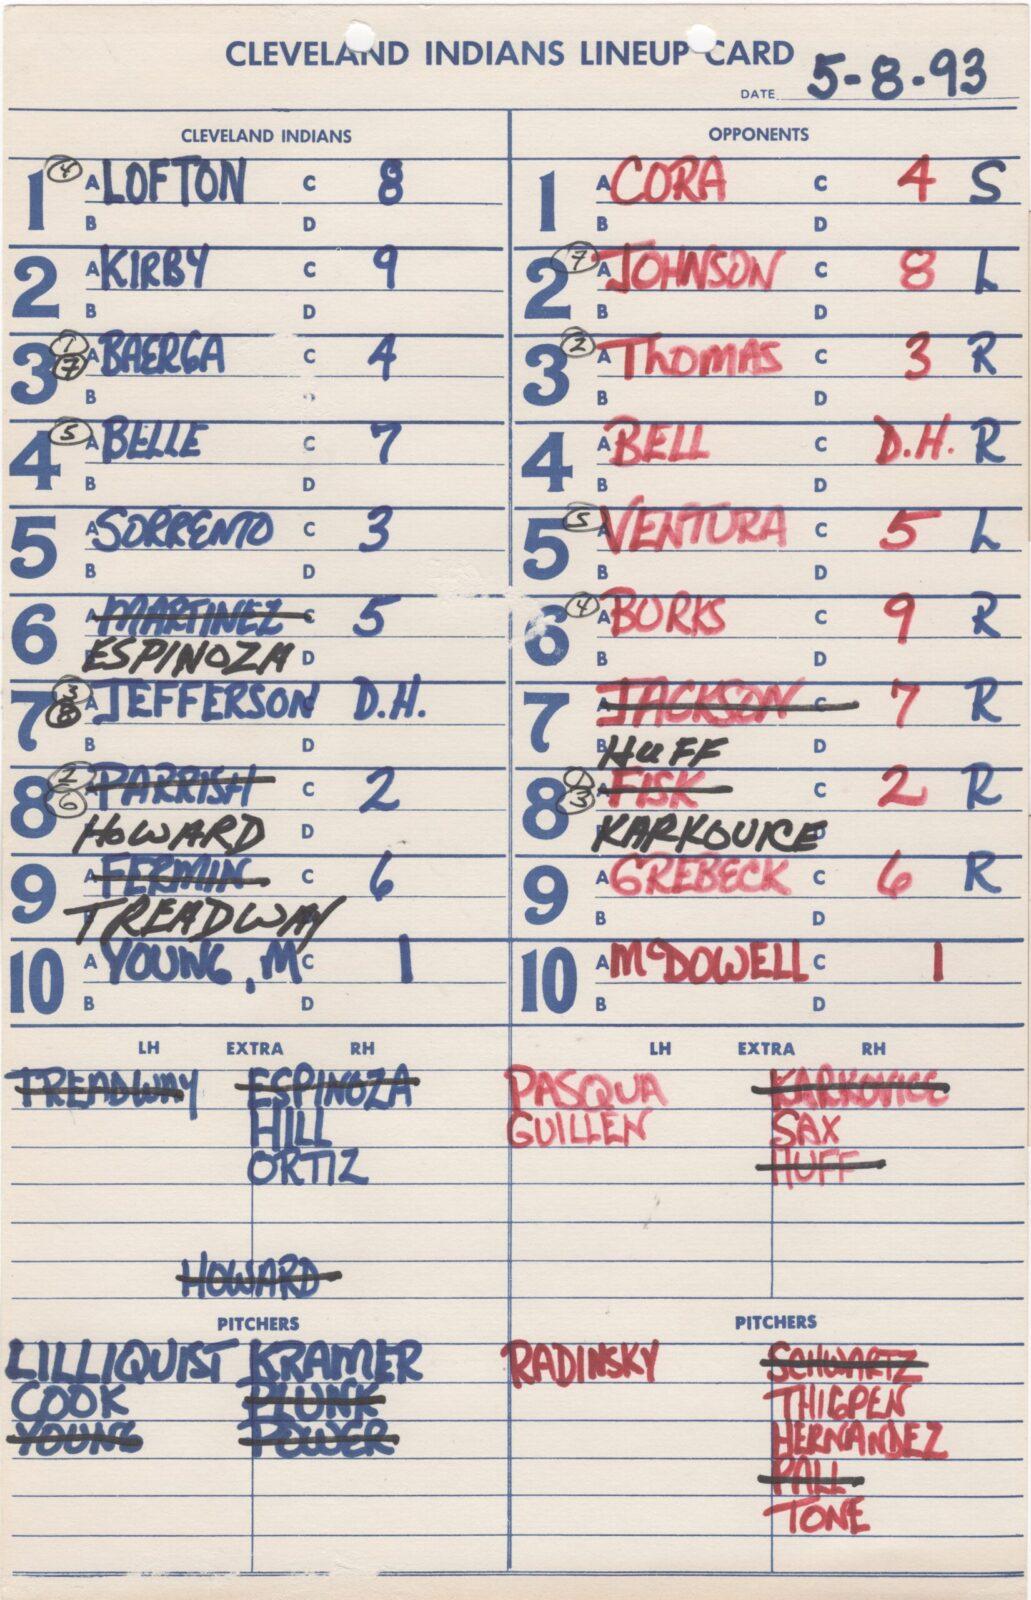 CLEVELAND INDIANS LINEUP CARD
DATE 5-8-93
CLEVELAND INDIANS
1 4 A LOFTON C 8
B D
2 A KIRBY C 9
B D
3 1 7 A BAERGA C 4
B D
4 5 A BELLE C 7
B D
5 A SORRENTO C 3
B D
6 A MARTINEZ C 5
ESPINOZA D
7 3 8 A JEFFERSON D.H.
B D
8 2 6 A PARRISH C 2
HOWARD D
9 A FERMIN C 6
B TREADWAY
10 A YOUNG, M C 1
B D
LH EXTRA RH
TREADWAY ESPINOZA
HILL
ORTIZ
HOWARD
PITCHERS
LILLIQUIST KRAMER
COOK PLUNK
YOUNG POWER
OPPONENTS
1 A CORA C 4 S
B D
2 7 A JOHNSON C 8 L
B D
3 2 A THOMAS C 3 R
B D
4 A BELL C D.H. R
B D
5 5 A VENTURA C 5 L
B D
6 4 A BURKS C 9 R
B D
7 A JACKSON C 7 R
B HUFF D
8 1 3 A FISK C 2 R
B KARKOVICE D
9 A GREBECK C 6 R
B D
10 A McDOWELL C 1
B D
LH EXTRA RH
PASQUA KARKOVICE
GUILLEN SAX
HUFF
PITCHERS
RADINSKY SCHWARTZ
THIGPEN
HERNANDEZ
PALL
TONE